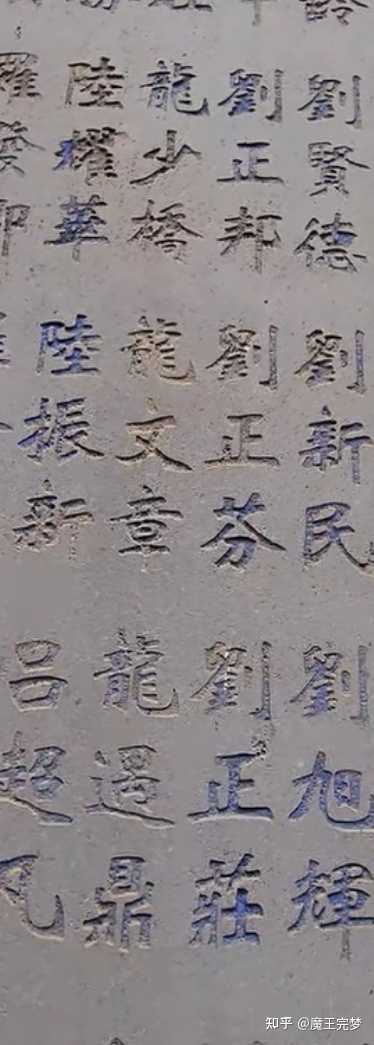 劉賢德
劉新民
劉旭輝
劉正邦
劉正芬
劉正莊
龍少橋
龍文章
龍遇鼎
陸耀華
陸振新
呂超凡
知乎 @魔王完梦